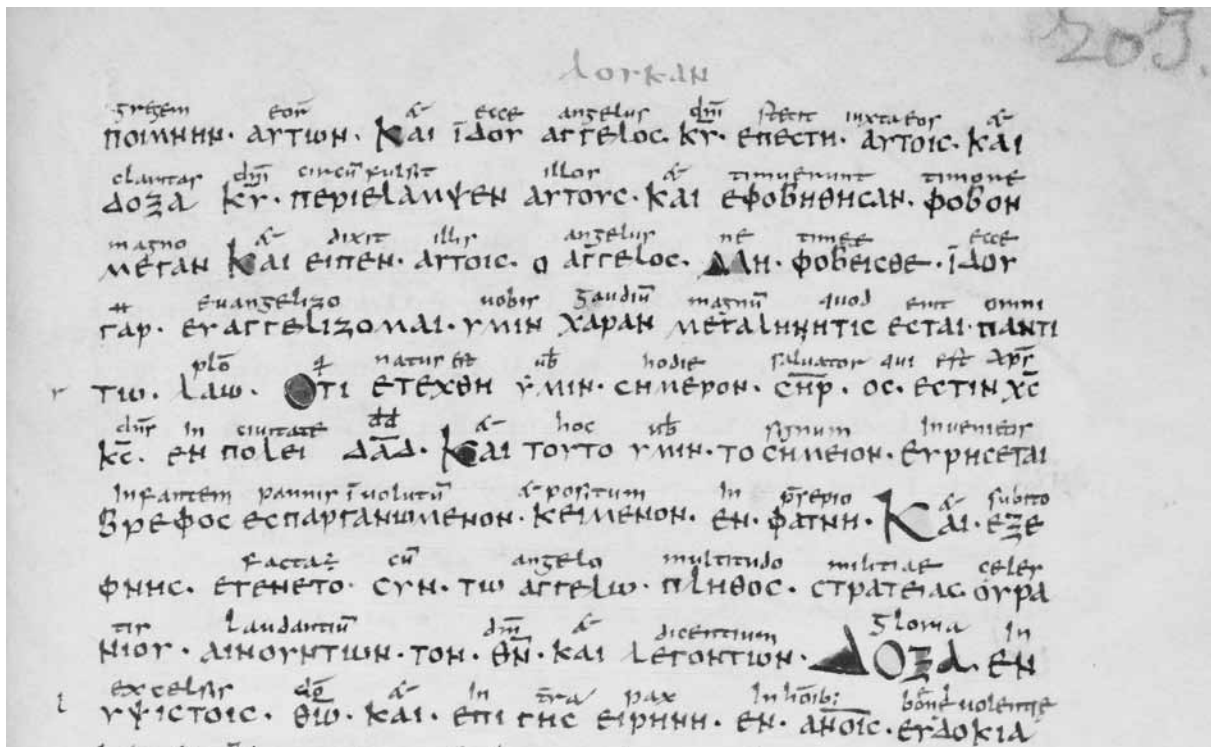 205.
λουκαν
gregem eoꝝ & ecce angelus dn̄i stetit iuxta eos &
ποιμνην· αυτων· Και ϊδου αγγελος· κ̅υ̅· επεστη· αυτοις· και
claritas dn̄i circūfulsit illos & timuerunt timore
δοξα κ̅υ̅· περιελαμψεν αυτους· και εφοβηθησαν· φοβον
magno & dixit illis angelus ne timete ecce
μεγαν Και ειπεν· αυτοις· ο αγγελος· Μη· φοβεισθε· ϊδου
evangelizo uobis gaudiū magnū quod erit omni
γαρ· ευαγγελιζομαι· υμιν χαραν μεγαληνητις εσται· παντι
plō natus ēst ub̄ hodie saluator qui est xp̄s
τω· λαω· Οτι ετεχθη ϋμιν· σημερον· σ̅η̅ρ̅· ος· εστιν χ̅ς̅
dn̄s in ciuitate dd̄ & hoc ub̄ signum Inuenietis
κ̅ς̅· εν πολει δ̅α̅δ̅· Και τουτο υμιν· το σημειον· ευρησεται
Infantem pannis īuolutū & positum In p̄sepio & subito
βρεφος εσπαργανωμενον· κειμενον· εν· φατνη· Και· εξε
facta· cū angelo multitudo militiae celes
φνης· εγενετο· συν· τω αγγελω· πληθος· στρατειας· ουρα
tis laudantiū dm̄ & dicentium Gloria In
νιου· αινουντων· τον· θ̅ν̅· και λεγοντων· Δοξα· εν
excelsis dō & In t̄ra pax In hōib; bone uoluntatis
υψιστοις· θ̅ω̅· και· επι γης ειρηνη· εν· αν̅οις· ευδοκια